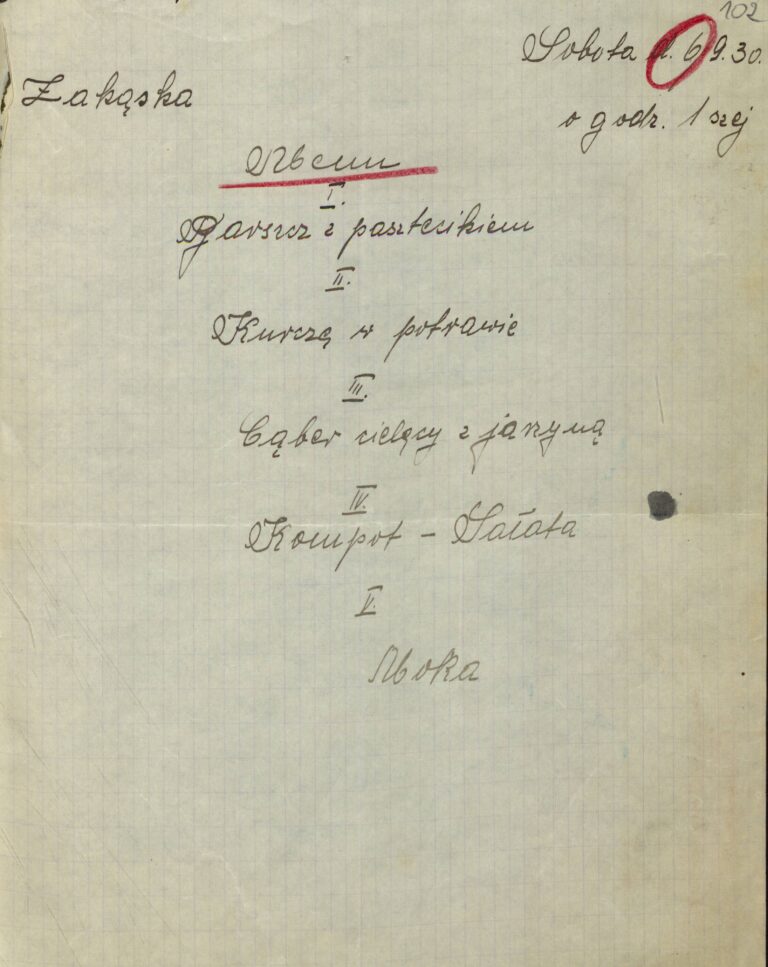 102
Sobota d. 6 9.30.
Zakąska
o godz. 1szej
Menu
I.
Barszcz z pasztecikiem
II.
Kurczę w potrawie
III.
Cąber cielęcy z jarzyną
IV.
Kompot - Sałata
V.
Moka